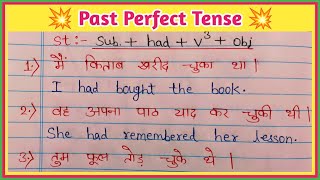 💥 Past Perfect Tense 💥
st:- Sub + had + v³ + obj
1:) मैं किताब खरीद चुका था।
I had bought the book.
2:) वह अपना पाठ याद कर चुकी थी।
She had remembered her lesson.
3:) तुम फूल तोड़ चुके थे।